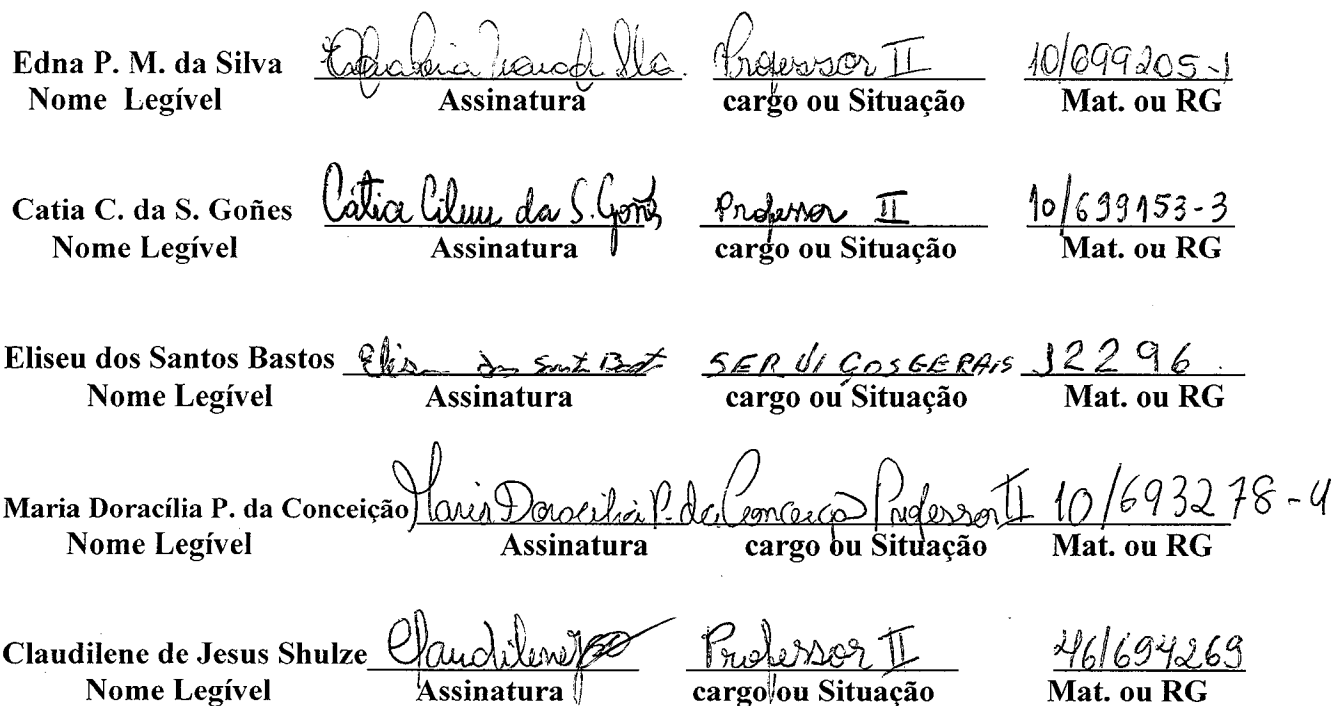 Edna P. M. da Silva Professor II 10/699205-1
Nome Legível Assinatura cargo ou Situação Mat. ou RG
Catia C. da S. Goñes Cátia Cilene da S. Goñes Professor II 10/699153-3
Nome Legível Assinatura cargo ou Situação Mat. ou RG
Eliseu dos Santos Bastos SERVIÇOS GERAIS 12296
Nome Legível Assinatura cargo ou Situação Mat. ou RG
Maria Doracília P. da Conceição Maria Doracilia P. da Conceição Professor II 10/693278-4
Nome Legível Assinatura cargo ou Situação Mat. ou RG
Claudilene de Jesus Shulze Claudilene Professor II 46/694269
Nome Legível Assinatura cargo ou Situação Mat. ou RG